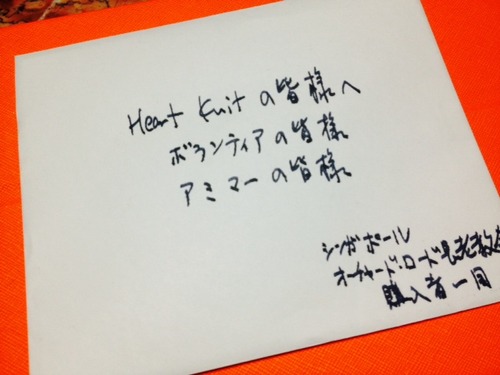 Heart Knitの皆様へ
ボランティアの皆様
アミマーの皆様
シンガポール
オーチャード・ロード
購入者一同